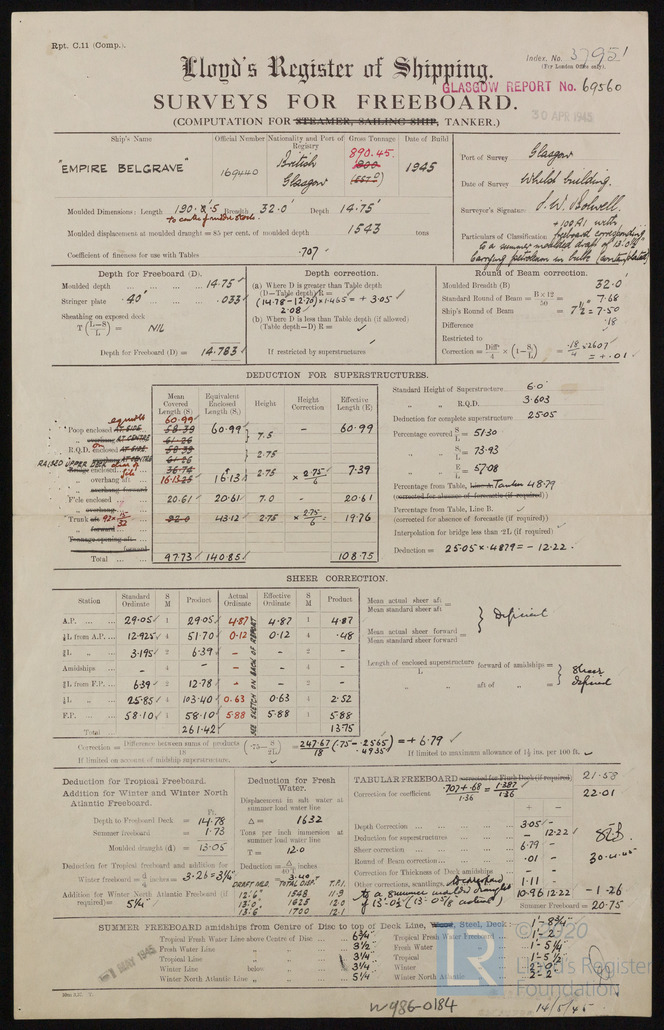 Rpt. C.11 (Comp.).
Index. No. 37951
(For London Office only).
Lloyd's Register of Shipping.
GLASGOW REPORT No. 69560
SURVEYS FOR FREEBOARD.
30 APR 1945
(COMPUTATION FOR STEAMER, SAILING SHIP, TANKER.)
Ship's Name
Official Number
Nationality and Port of Registry
Gross Tonnage
Date of Build
"EMPIRE BELGRAVE"
169440
British
Glasgow
890.45.
1945
Port of Survey Glasgow
Date of Survey Whilst building.
Surveyor's Signature
Particulars of Classification +100A1 with
freeboard corresponding
to a summer moulded draft of 13.0½
carrying petroleum in bulk (contemplated)
Moulded Dimensions: Length 190.85 Breadth 32.0' Depth 14.75'
Moulded displacement at moulded draught = 85 per cent. of moulded depth 1543 tons
Coefficient of fineness for use with Tables .707
Depth for Freeboard (D).
Moulded depth 14.75
Stringer plate .40" .033
Sheathing on exposed deck
T (L-S/L) = NIL
Depth for Freeboard (D) = 14.783
Depth correction.
(a) Where D is greater than Table depth
(D—Table depth) R =
(14.78 - 12.70) × 1.465 = + 3.05
2.08
(b) Where D is less than Table depth (if allowed)
(Table depth—D) R =
If restricted by superstructures
Round of Beam correction.
Moulded Breadth (B) 32.0
Standard Round of Beam = B×12/50 = 7.68
Ship's Round of Beam = 7½" = 7.50
Difference .18
Restricted to
Correction = Diff/4 × (1 - S₁/L) = .18/4 × .2607
= + .01
DEDUCTION FOR SUPERSTRUCTURES.
Mean Covered Length (S)
Equivalent Enclosed Length (S₁)
Height
Height Correction
Effective Length (E)
Poop enclosed 60.99 60.99 7.5 - 60.99
R.Q.D. enclosed 2.75
RAISED UPPER DECK
overhang aft 16.13 16.13 2.75 × 2.75/6 7.39
F'cle enclosed 20.61 20.61 7.0 - 20.61
Trunk aft 92 × 15/32 92.0 43.12 2.75 × 2.75/6 19.76
forward
Tonnage opening aft
forward
Total 97.73 140.85 108.75
Standard Height of Superstructure 6.0
" " R.Q.D. 3.603
Deduction for complete superstructure 25.05
Percentage covered S/L = 51.30
" " S₁/L = 73.93
" " E/L = 57.08
Percentage from Table, Line A Tanker 48.79
(corrected for absence of forecastle (if required))
Percentage from Table, Line B.
(corrected for absence of forecastle (if required))
Interpolation for bridge less than ·2L (if required)
Deduction = 25.05 × .4879 = - 12.22.
SHEER CORRECTION.
Station
Standard Ordinate
S M
Product
Actual Ordinate
Effective Ordinate
S M
Product
A.P. 29.05 1 29.05 4.87 4.87 1 4.87
⅙L from A.P. 12.925 4 51.70 0.12 0.12 4 .48
⅓L " 3.195 2 6.39 - - 2 -
Amidships - 4 - - - 4 -
⅓L from F.P. 6.39 2 12.78 - - 2 -
⅙L " 25.85 4 103.40 0.63 0.63 4 2.52
F.P. 58.10 1 58.10 5.88 5.88 1 5.88
Total 261.42 13.75
SEE SKETCH ON BACK OF REPORT
Mean actual sheer aft
Mean standard sheer aft =
Mean actual sheer forward
Mean standard sheer forward =
Deficient
Length of enclosed superstructure forward of amidships =
L
" aft of " =
Sheer
deficient
Correction = Difference between sums of products/18 (·75 - S/2L) = 247.67/18 (.75 - .2565) = + 6.79
.4935
If limited on account of midship superstructure.
If limited to maximum allowance of 1½ ins. per 100 ft.
Deduction for Tropical Freeboard.
Addition for Winter and Winter North Atlantic Freeboard.
Ft.
Depth to Freeboard Deck = 14.78
Summer freeboard = 1.73
Moulded draught (d) = 13.05
Deduction for Tropical freeboard and addition for
Winter freeboard = d/4 inches = 3.26 = 3¼"
Addition for Winter North Atlantic Freeboard (if required) = 5¼"
Deduction for Fresh Water.
Displacement in salt water at summer load water line
Δ = 1632
Tons per inch immersion at summer load water line
T = 12.0
Deduction = Δ/40T inches
= 3.40
DRAFT MLD. TOTAL DISP. T.P.I.
12'6" 1548 11.9
13'0" 1625 12.0
13'6" 1700 12.1
TABULAR FREEBOARD corrected for Flush Deck (if required) 21.58
Correction for coefficient .707+.68/1.36 = 1.387/1.36 22.01
+ -
Depth Correction 3.05 -
Deduction for superstructures - 12.22
Sheer correction 6.79 -
Round of Beam correction .01 -
Correction for Thickness of Deck amidships - -
Other corrections, scantlings, 1.11 -
to a summer moulded draught
of 13'.05
10.96 12.22 - 1.26
Summer Freeboard = 20.75
30.4.45
SUMMER FREEBOARD amidships from Centre of Disc to top of Deck Line, Wood, Steel, Deck: 1'- 8¾"
Tropical Fresh Water Line above Centre of Disc 6¾"
Fresh Water Line " " 3½"
Tropical Line " " 3¼"
Winter Line below " 3¼"
Winter North Atlantic Line " " 5¼"
Tropical Fresh Water Freeboard 1'- 2"
Fresh Water " 1'- 5¼"
Tropical " 1'- 5½"
Winter " 2'- 0"
Winter North Atlantic " 2'- 2"
MAY 1945
© 2020
LR
Lloyd's Register
Foundation
W986-0184
14/5/45